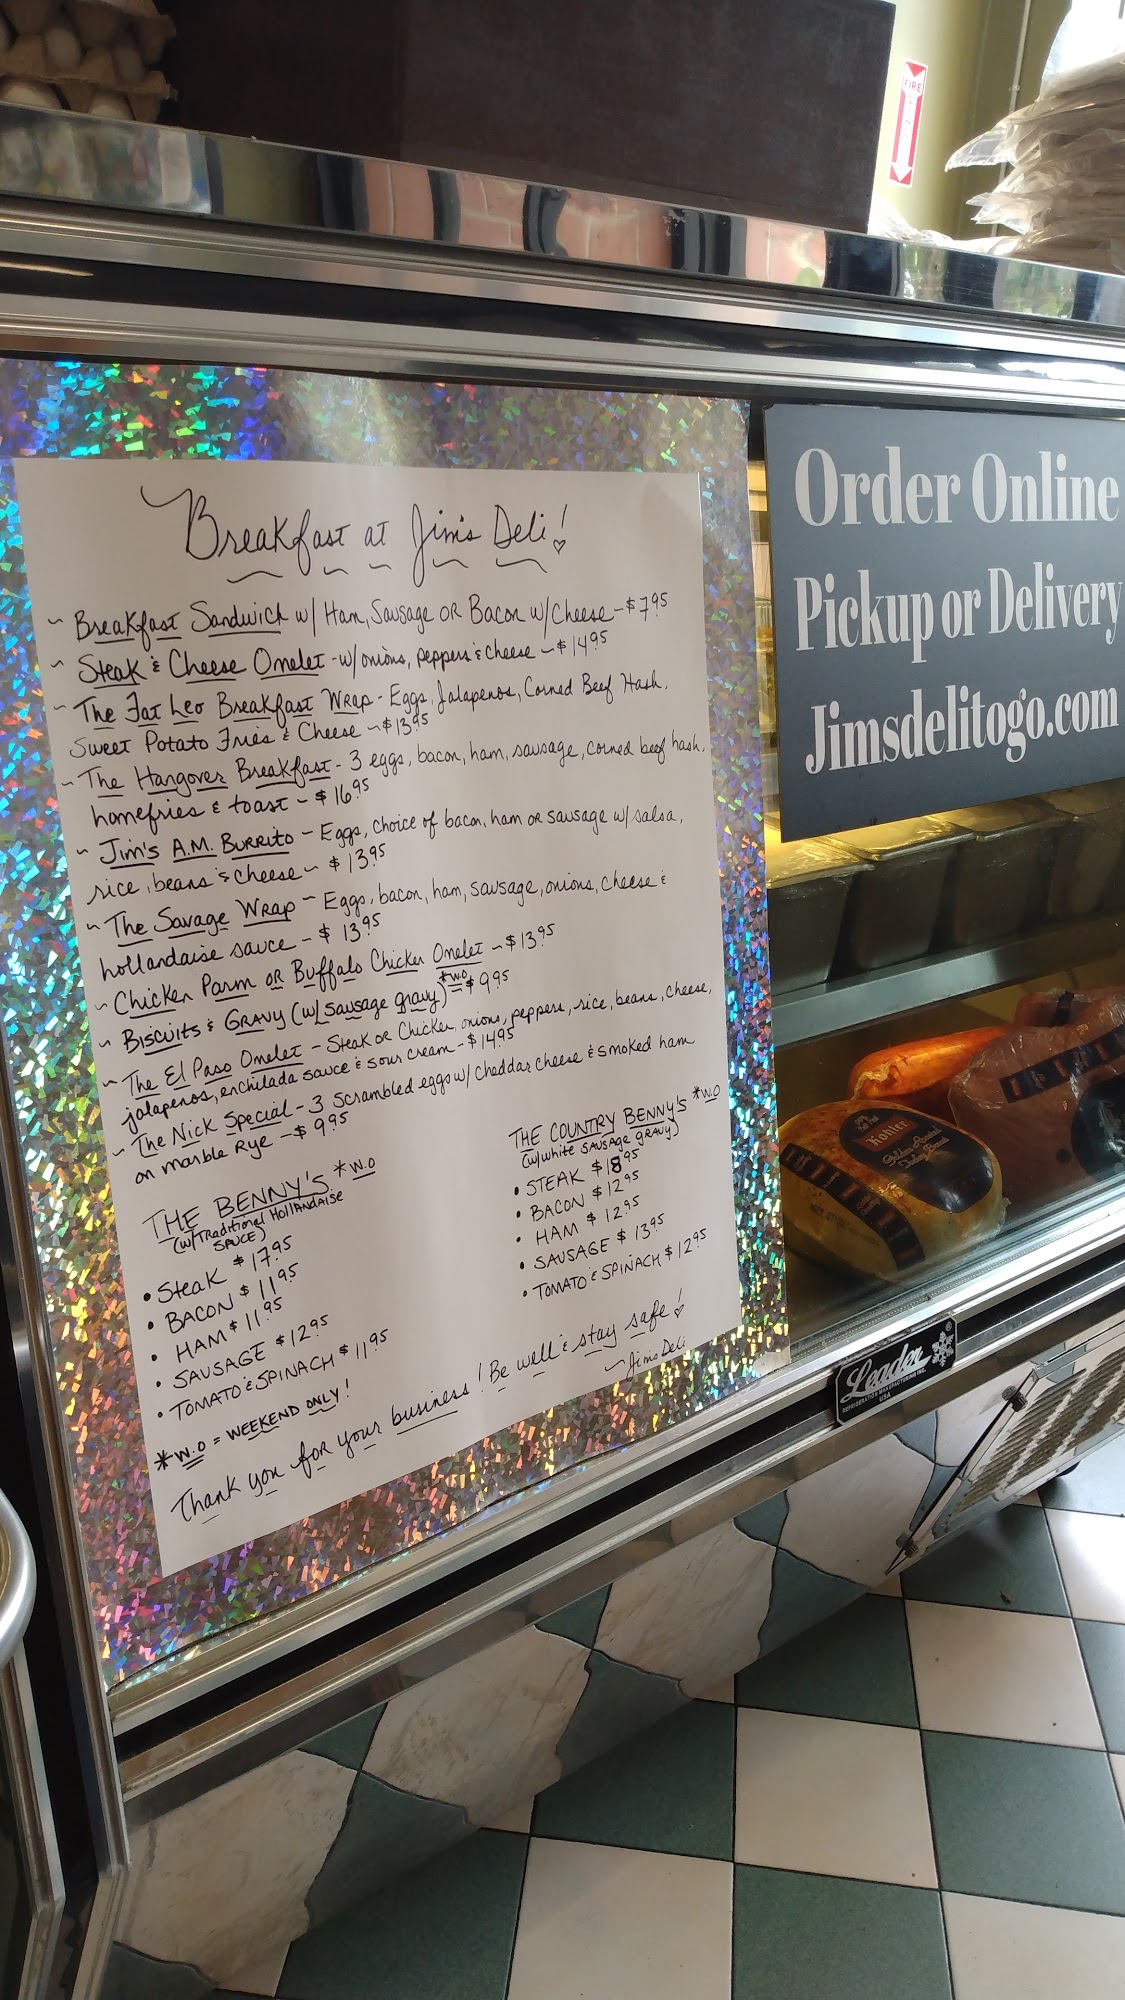 FIRE
Breakfast at Jim's Deli!
~ Breakfast Sandwich w/ Ham, Sausage or Bacon w/Cheese - $7.95
~ Steak & Cheese Omelet - w/onions, peppers & cheese ~ $14.95
~ The Fat Leo Breakfast Wrap - Eggs, Jalapenos, Corned Beef Hash,
Sweet Potato Fries & Cheese ~ $13.95
~ The Hangover Breakfast - 3 eggs, bacon, ham, sausage, corned beef hash,
homefries & toast ~ $16.95
~ Jim's A.M. Burrito ~ Eggs, choice of bacon, ham or sausage w/ salsa,
rice, beans & cheese ~ $13.95
~ The Savage Wrap ~ Eggs, bacon, ham, sausage, onions, cheese &
hollandaise sauce ~ $13.95
~ Chicken Parm or Buffalo Chicken Omelet ~ $13.95
~ Biscuits & Gravy (w/ sausage gravy) *W.O - $9.95
~ The El Paso Omelet - Steak or Chicken, onions, peppers, rice, beans, cheese,
jalapenos, enchilada sauce & sour cream - $14.95
~ The Nick Special - 3 Scrambled eggs w/ cheddar cheese & smoked ham
on marble Rye ~ $9.95
THE BENNY'S *W.O
(w/Traditional Hollandaise
SAUCE)
• Steak $17.95
• BACON $11.95
• HAM $11.95
• SAUSAGE $12.95
• TOMATO & SPINACH $11.95
*W.O = WEEKEND ONLY!
THE COUNTRY BENNY'S *W.O
(w/white SAUSAGE GRAVY)
• STEAK $18.95
• BACON $12.95
• HAM $12.95
• SAUSAGE $13.95
• TOMATO & SPINACH $12.95
Thank you for your business! Be well & stay safe!
~ Jims Deli
Order Online
Pickup or Delivery
Jimsdelitogo.com
Kohler
Leader
REFRIGERATION MANUFACTURING INC.
USA